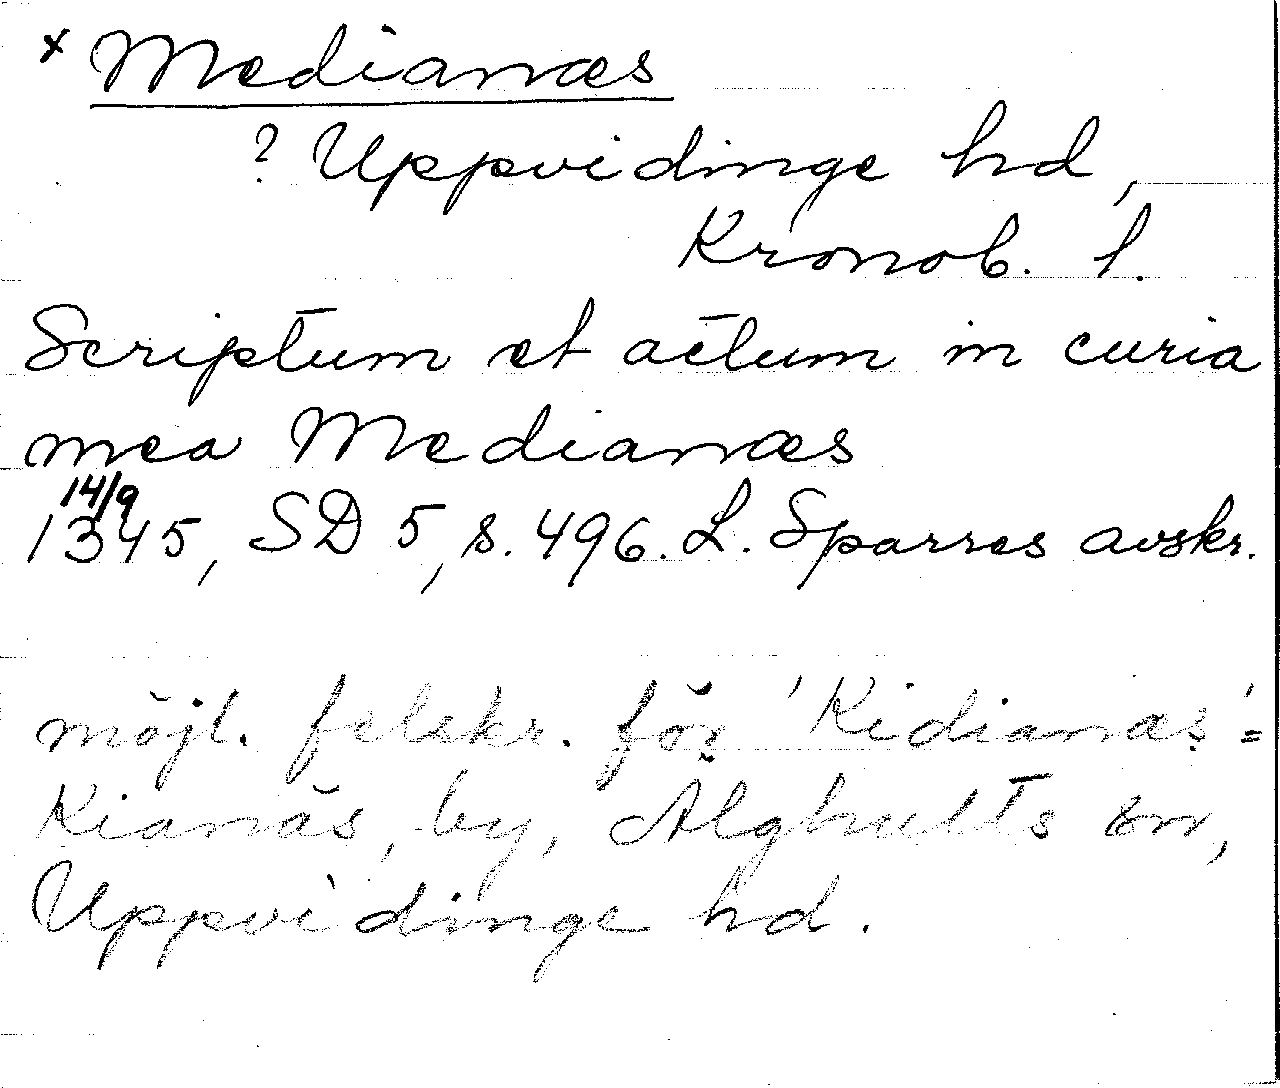 x Medianæs
? Uppvidinge hd,
Kronob. l.
Scriptum et actum in curia
mea Medianæs
14/9
1345, SD 5, s. 496. L. Sparres avskr.
möjl. felskr. för 'Kidianæs' =
Kianäs, by, Älghults sn,
Uppvidinge hd.